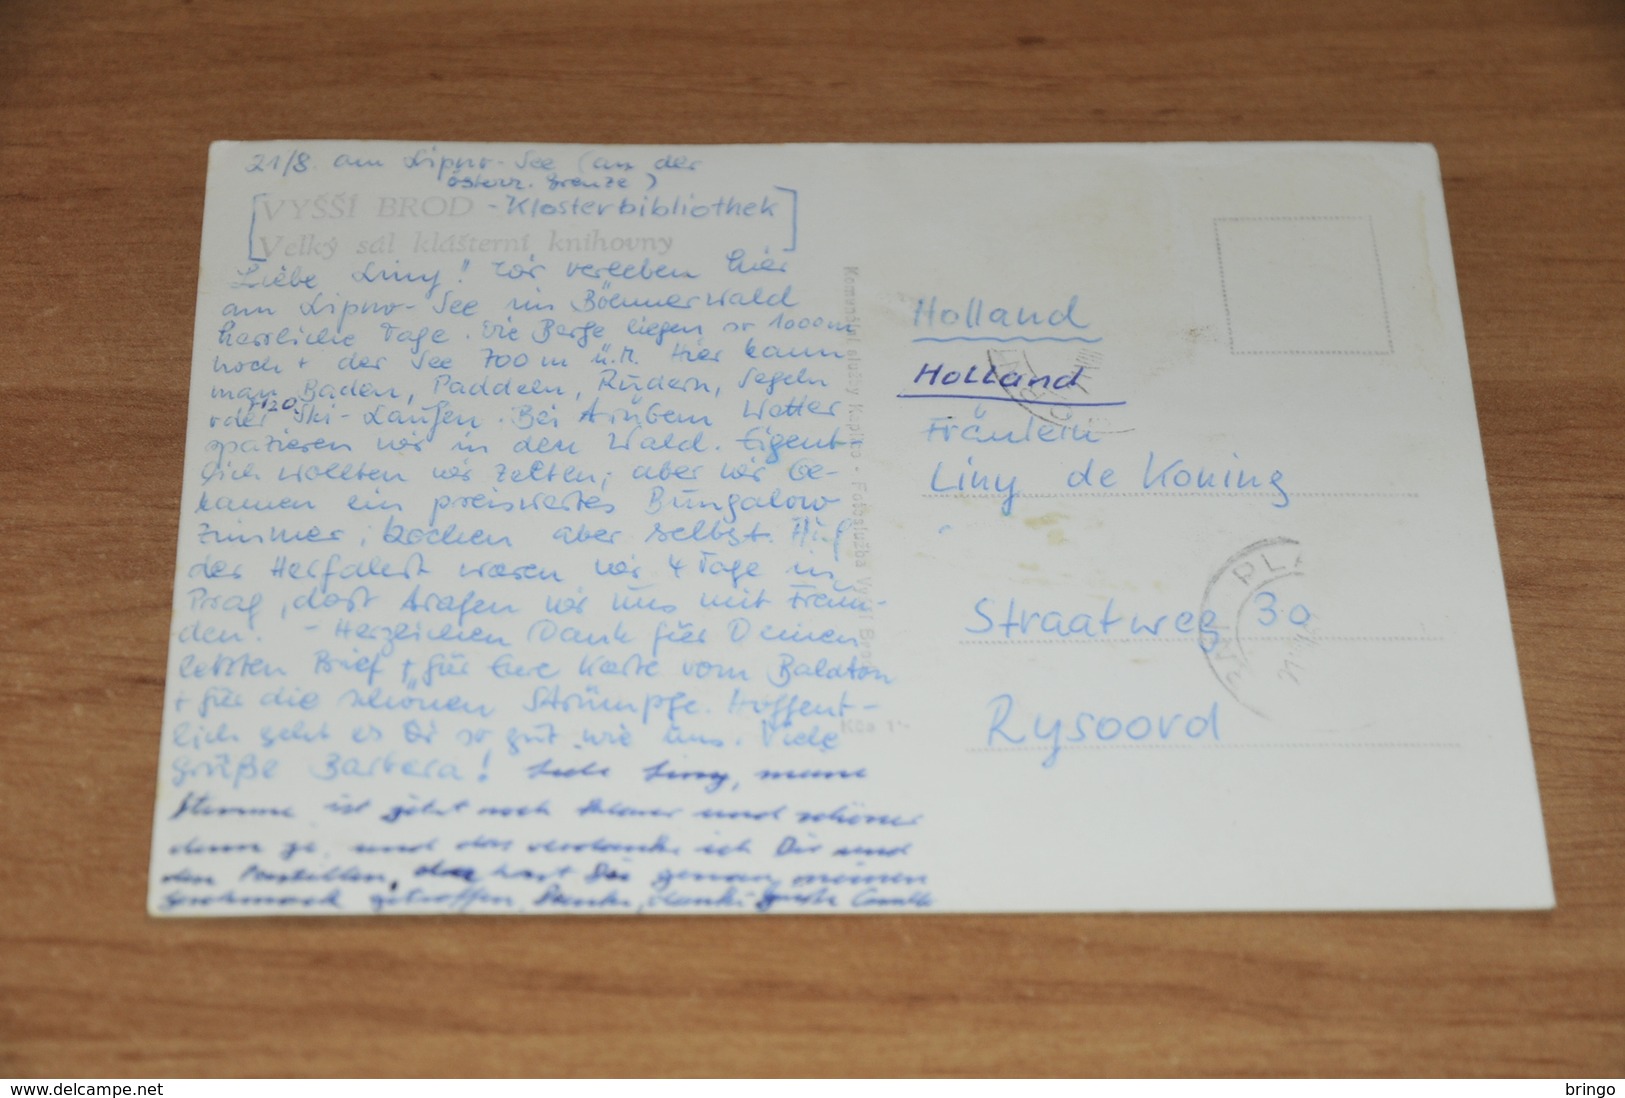 21/8. am Lipno-See (an der
österr. Grenze)
VYŠŠÍ BROD - Klosterbibliothek
Velký sál klášterní knihovny
Liebe Liny! Wir verleben hier
am Lipno-See im Böhmerwald
herrliche Tage. Die Berge liegen so 1000 m
hoch + der See 700 m ü.M. Hier kann
man Baden, Paddeln, Rudern, Segeln
oder Ski-Laufen. Bei trübem Wetter
H2O
spazieren wir in den Wald. Eigent-
lich wollten wir zelten; aber wir be-
kamen ein preiswertes Bungalow
Zimmer, kochen aber selbst. Auf
der Herfahrt waren wir 4 Tage in
Prag, dort trafen wir uns mit Freun-
den. - Herzlichen Dank für Deinen
letzten Brief + für Eure Karte vom Balaton
+ für die schönen Strümpfe. Hoffent-
lich geht es Dir so gut wie uns. Viele
Grüße Barbara! Liebe Liny, meine
Stimme ist jetzt noch klarer und schöner
denn je, und das verdanke ich Dir und
den Pastillen, da hast Du genau meinen
Geschmack getroffen. Danke, danke
Komenční služby Kaplice - Fotoslužba Vyšší Brod
Kčs 1
Holland
Holland
Fräulein
Liny de Koning
Straatweg 30
Rysoord
PLA
bringo
delcampe.net